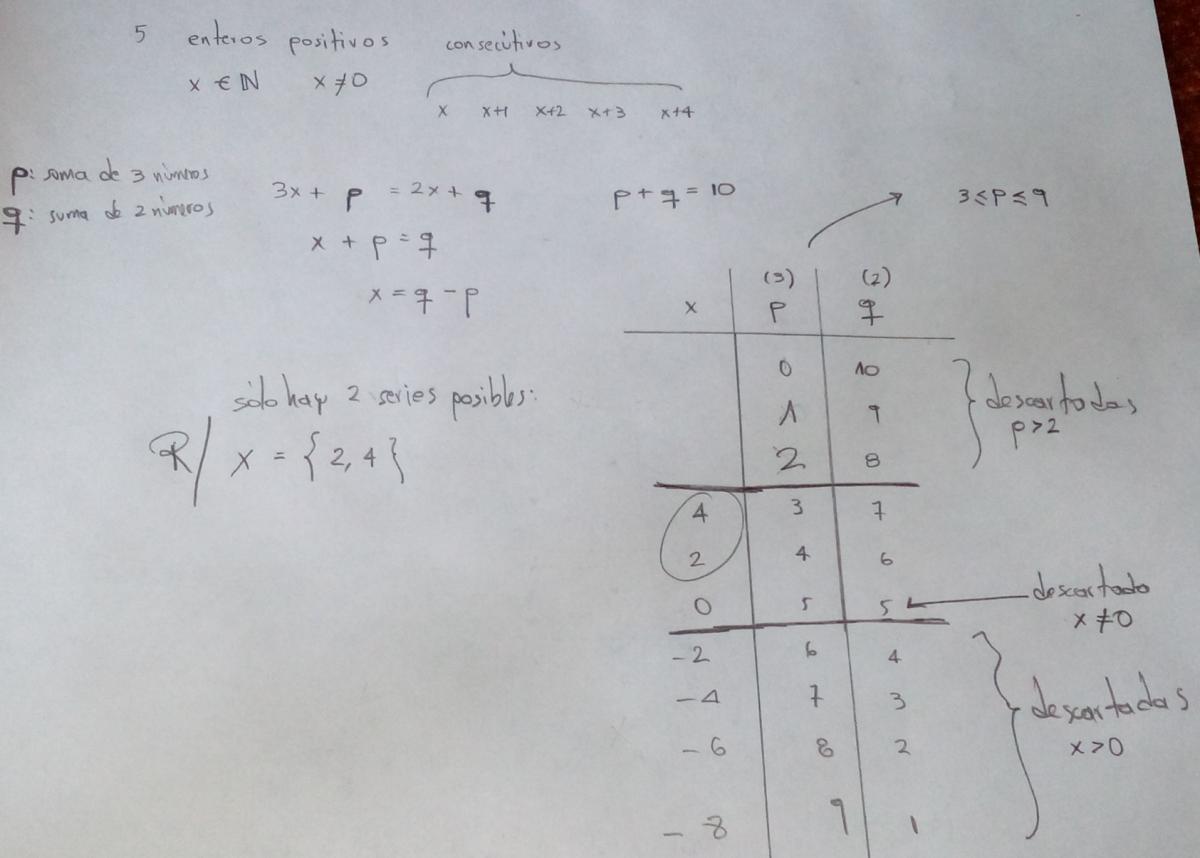 5 enteros positivos consecutivos
x ∈ ℕ x ≠ 0
x x+1 x+2 x+3 x+4
p: suma de 3 números
q: suma de 2 números
3x + p = 2x + q
p + q = 10
3 ≤ p ≤ 9
x + p = q
x = q - p
(3) (2)
x p q
0 10
1 9
2 8
descartadas
p>2
4 3 7
2 4 6
0 5 5
descartado
x ≠ 0
-2 6 4
-4 7 3
-6 8 2
-8 9 1
descartadas
x > 0
sólo hay 2 series posibles:
R/ x = { 2, 4 }